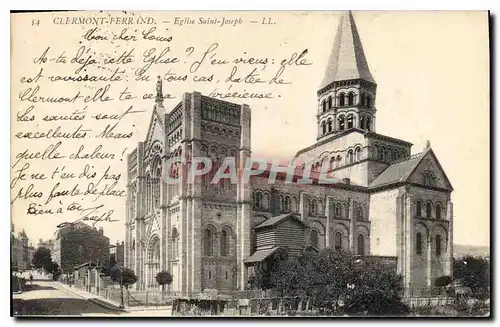 54 CLERMONT-FERRAND. - Eglise Saint-Joseph - LL.
Mon cher Louis
As-tu déjà cette Eglise? J'en viens: elle
est ravissante. En tous cas, date de
Clermont elle te sera précieuse
Les santés sont
excellentes. Mais
quelle chaleur!
Je ne t'en dis pas
plus faute de place
Bien à toi
Joseph
CPARAMA